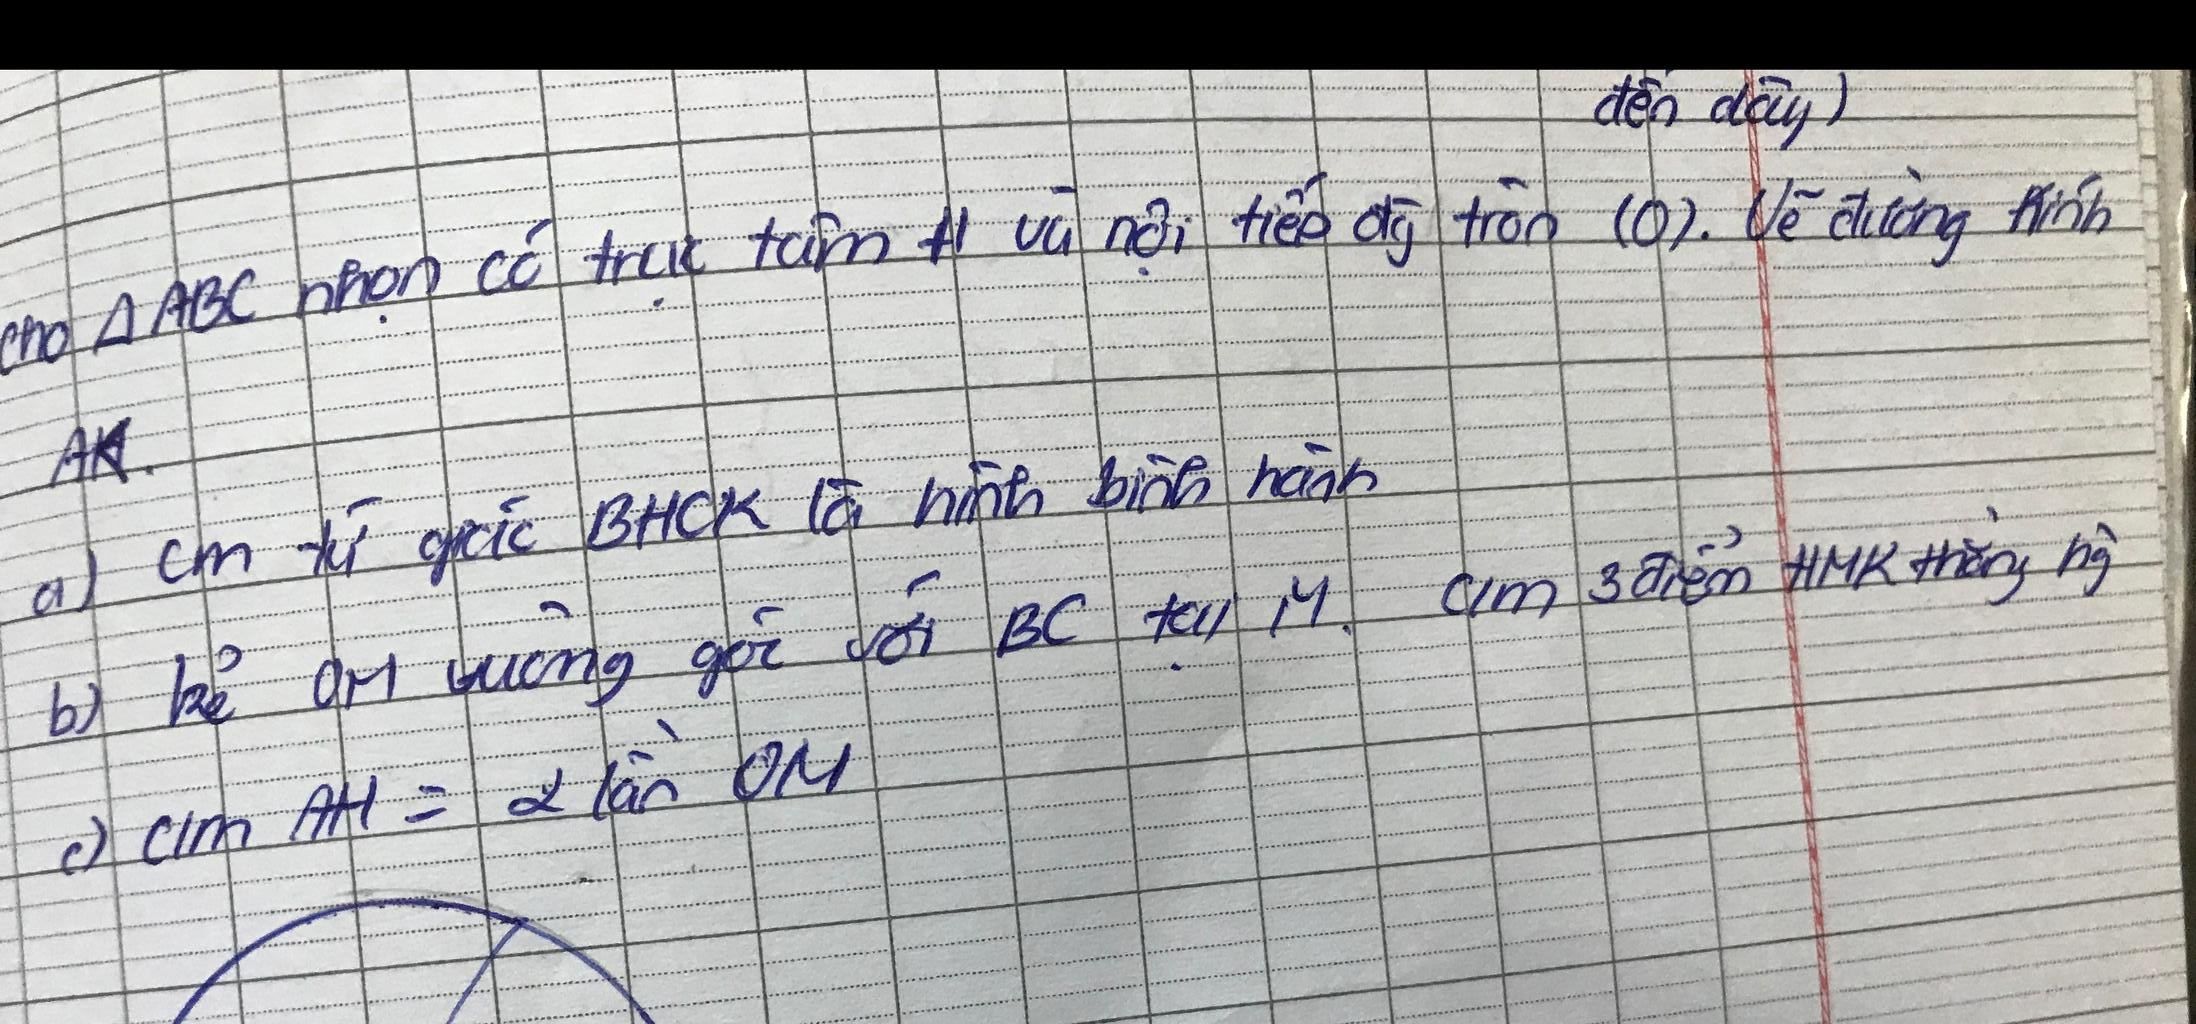 đến dây)
cho △ ABC nhọn có trực tâm H và nội tiếp đg tròn (O). Vẽ đường kính
AK.
a) cm tứ giác BHCK là hình bình hành
b) kẻ OM vuông góc với BC tại M. cm 3 điểm HMK thẳng hg
c) cm AH = 2 lần OM